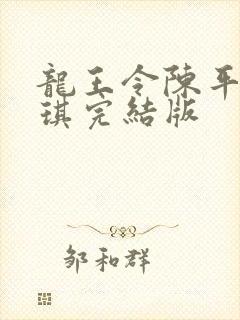 龍王令陳平
琪完結版
鄒和群